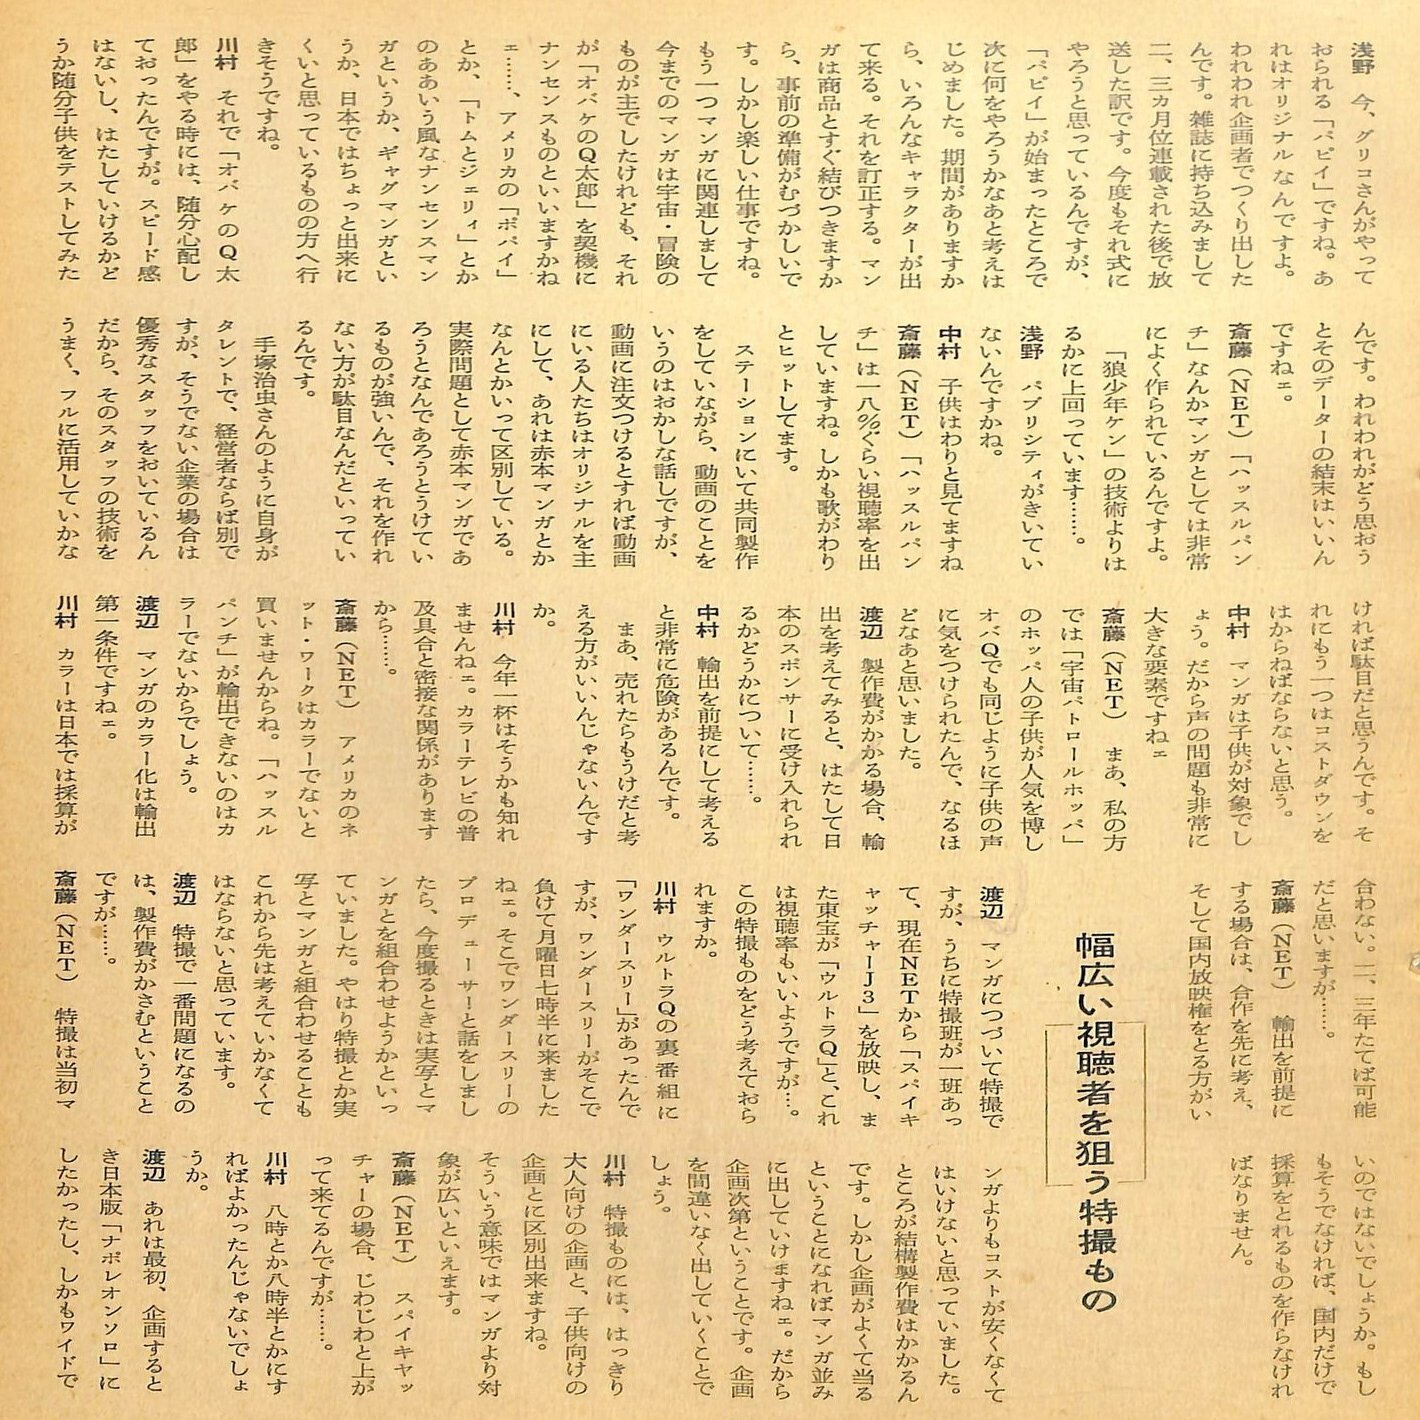 浅野　今、グリコさんがやって
おられる「パピイ」ですね。あ
れはオリジナルなんですよ。
われわれ企画者でつくり出した
んです。雑誌に持ち込みまして
二、三カ月位連載された後で放
送した訳です。今度もそれ式に
やろうと思っているんですが、
「パピイ」が始まったところで
次に何をやろうかなあと考えは
じめました。期間がありますか
ら、いろんなキャラクターが出
て来る。それを訂正する。マン
ガは商品とすぐ結びつきますか
ら、事前の準備がむづかしいで
す。しかし楽しい仕事ですね。
もう一つマンガに関連しまして
今までのマンガは宇宙・冒険の
ものが主でしたけれども、それ
が「オバケのQ太郎」を契機に
ナンセンスものといいますかね
ェ……、アメリカの「ポパイ」
とか、「トムとジェリィ」とか
のああいう風なナンセンスマン
ガというか、ギャグマンガとい
うか、日本ではちょっと出来に
くいと思っているものの方へ行
きそうですね。
川村　それで「オバケのQ太
郎」をやる時には、随分心配し
ておったんですが。スピード感
はないし、はたしていけるかど
うか随分子供をテストしてみた
んです。われわれがどう思おう
とそのデーターの結末はいいん
ですねェ。
斎藤（NET）「ハッスルパン
チ」なんかマンガとしては非常
によく作られているんですよ。
「狼少年ケン」の技術よりは
るかに上回っています……。
浅野　パブリシティがきいてい
ないんですかね。
中村　子供はわりと見てますね
斎藤（NET）「ハッスルパン
チ」は一八％ぐらい視聴率を出
していますね。しかも歌がわり
とヒットしてます。
ステーションにいて共同製作
をしていながら、動画のことを
いうのはおかしな話しですが、
動画に注文つけるとすれば動画
にいる人たちはオリジナルを主
にして、あれは赤本マンガとか
なんとかいって区別している。
実際問題として赤本マンガであ
ろうとなんであろうとうけてい
るものが強いんで、それを作れ
ない方が駄目なんだといってい
るんです。
手塚治虫さんのように自身が
タレントで、経営者ならば別で
すが、そうでない企業の場合は
優秀なスタッフをおいているん
だから、そのスタッフの技術を
うまく、フルに活用していかな
ければ駄目だと思うんです。そ
れにもう一つはコストダウンを
はからねばならないと思う。
中村　マンガは子供が対象でし
ょう。だから声の問題も非常に
大きな要素ですねェ
斎藤（NET）　まあ、私の方
では「宇宙パトロールホッパ」
のホッパ人の子供が人気を博し
オバQでも同じように子供の声
に気をつけられたんで、なるほ
どなあと思いました。
渡辺　製作費がかかる場合、輸
出を考えてみると、はたして日
本のスポンサーに受け入れられ
るかどうかについて……。
中村　輸出を前提にして考える
と非常に危険があるんです。
まあ、売れたらもうけだと考
える方がいいんじゃないんです
か。
川村　今年一杯はそうかも知れ
ませんねェ。カラーテレビの普
及具合と密接な関係があります
から……。
斎藤（NET）　アメリカのネ
ット・ワークはカラーでないと
買いませんからね。「ハッスル
パンチ」が輸出できないのはカ
ラーでないからでしょう。
渡辺　マンガのカラー化は輸出
第一条件ですねェ。
川村　カラーは日本では採算が
合わない。二、三年たてば可能
だと思いますが……。
斎藤（NET）　輸出を前提に
する場合は、合作を先に考え、
そして国内放映権をとる方がい
いのではないでしょうか。もし
もそうでなければ、国内だけで
採算をとれるものを作らなけれ
ばなりません。
幅広い視聴者を狙う特撮もの
渡辺　マンガにつづいて特撮で
すが、うちに特撮班が一班あっ
て、現在NETから「スパイキ
ャッチャーJ3」を放映し、ま
た東宝が「ウルトラQ」と、これ
は視聴率もいいようですが…。
この特撮ものをどう考えておら
れますか。
川村　ウルトラQの裏番組に
「ワンダースリー」があったんで
すが、ワンダースリーがそこで
負けて月曜日七時半に来ました
ねェ。そこでワンダースリーの
プロデューサーと話をしまし
たら、今度撮るときは実写とマ
ンガとを組合わせようかといっ
ていました。やはり特撮とか実
写とマンガと組合わせることも
これから先は考えていかなくて
はならないと思っています。
渡辺　特撮で一番問題になるの
は、製作費がかさむということ
ですが……。
斎藤（NET）　特撮は当初マ
ンガよりもコストが安くなくて
はいけないと思っていました。
ところが結構製作費はかかるん
です。しかし企画がよくて当る
ということになればマンガ並み
に出していけますねェ。だから
企画次第ということです。企画
を間違いなく出していくことで
しょう。
川村　特撮ものには、はっきり
大人向けの企画と、子供向けの
企画とに区別出来ますね。
そういう意味ではマンガより対
象が広いといえます。
斎藤（NET）　スパイキャッ
チャーの場合、じわじわと上が
って来てるんですが……。
川村　八時とか八時半とかにす
ればよかったんじゃないでしょ
うか。
渡辺　あれは最初、企画すると
き日本版「ナポレオンソロ」に
したかったし、しかもワイドで